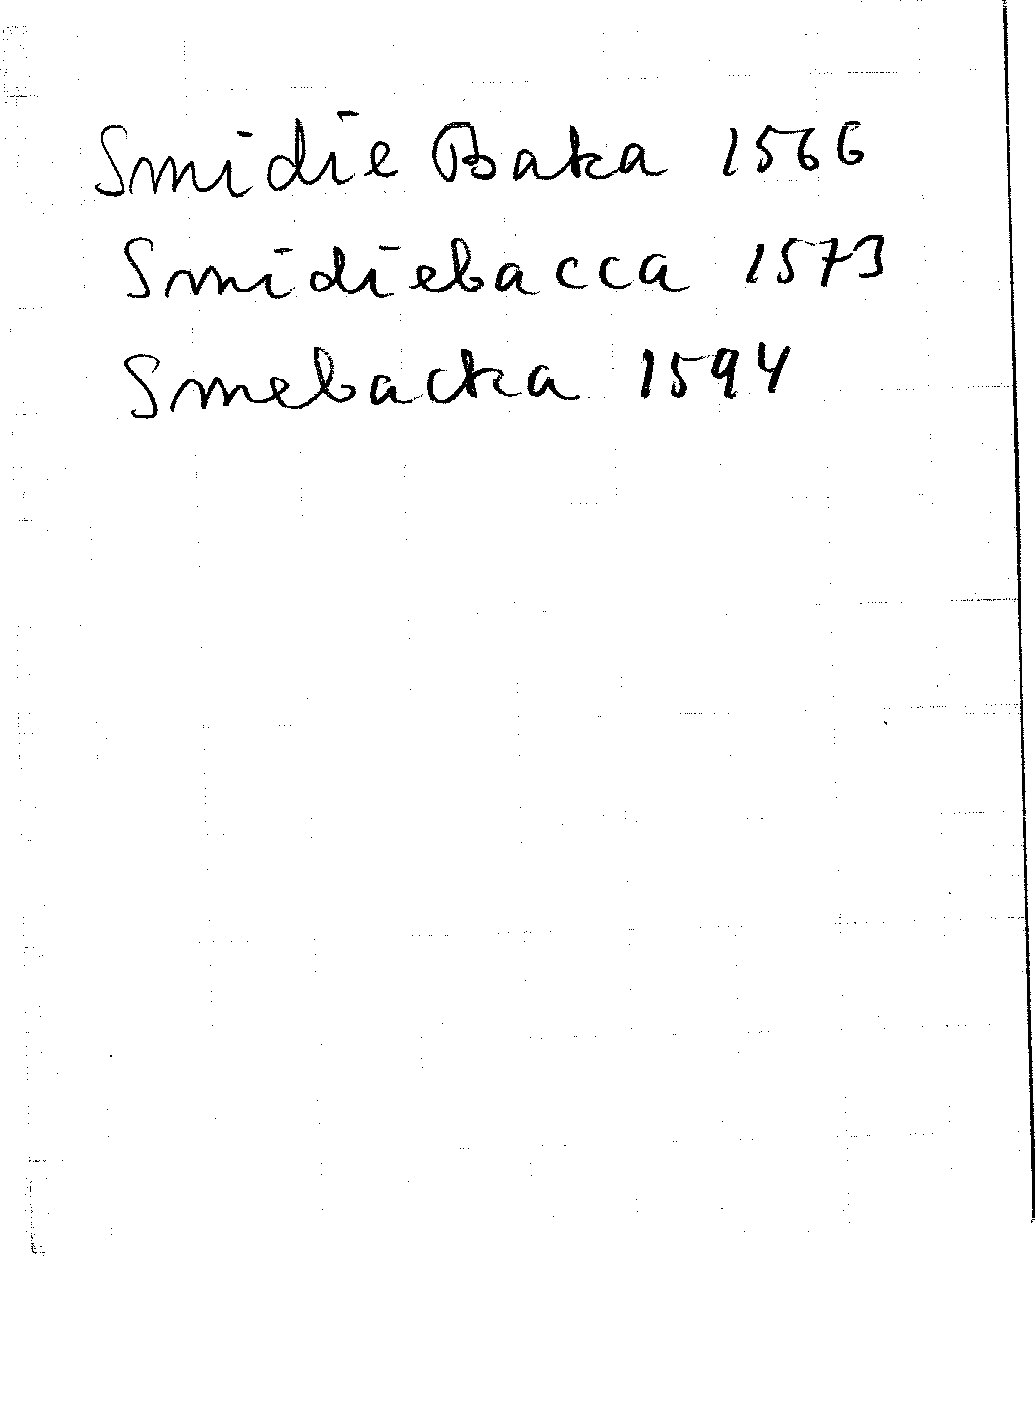 Smidie Baka 1566
Smidiebacca 1573
Smebacka 1594